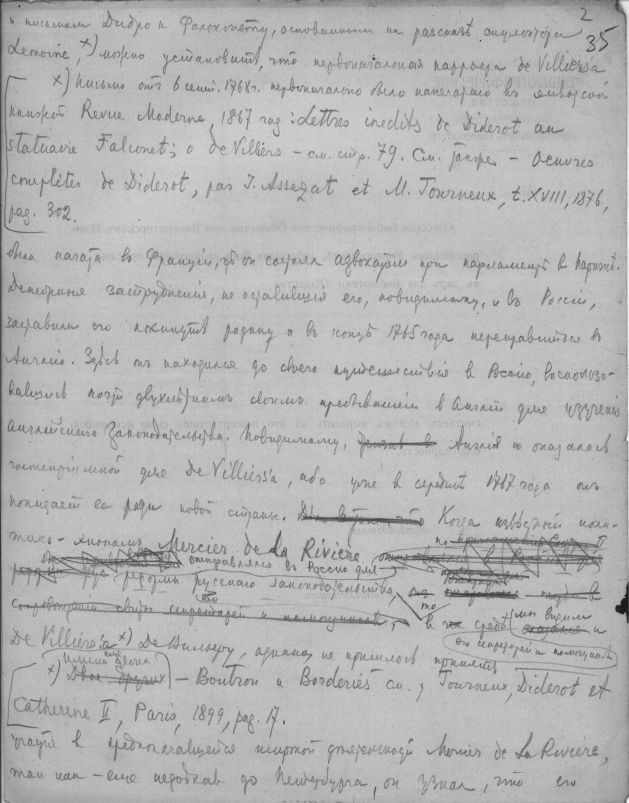 2
35
и письмам Дидро к Фальконету, основанным на рассказе скульптора
Lemoine, х) можно установить, что первоначальная карьера de Villiers'a
х) письмо отъ 6 сент. 1768г. первоначально было напечатано въ январской
книжкѣ Revue Moderne, 1867 год: Lettres inedits de Diderot au
statuaire Falconet; о de Villiers – см. стр. 79. См. также – Oeuvres
complètes de Diderot, par J. Assezat et M. Tourneux, t. XVIII, 1876,
pag. 302.
была начата въ Франціи, гдѣ он состоял адвокатом при парламентѣ в Парижѣ.
Денежныя затрудненія, не оставившія его, повидимому, и въ Россіи,
заставили его покинуть родину и въ концѣ 1765 года переправиться въ
Англію. Здѣсь онъ находился до своего путешествія в Россію, воспользо-
вавшись почти двухлѣтнимъ своимъ пребываніем в Англіи для изученія
Англійскаго законодательства. Повидимому, Англія не оказалась
гостепріимной для De Villiers'a, ибо уже в серединѣ 1767 года онъ
покидает ее ради новой страны. Когда извѣстный поли-
тико-экономъ Mercier de La Rivière
отправлялся въ Россію для
реформы русскаго законодательства,
то
в средѣ мы видим и
его секретарей и помощников
De Villiers'a х) Де Вильеру, однако, не пришлось принять
имена двухъ
х) Двое других – Boutron и Borderiés см. Tourneux, Diderot et
Catherine II, Paris, 1899, pag. 17.
участія в предполагавшейся широкой дѣятельности Mercier de La Rivière,
так как – еще недоѣхав до Петербурга, он узнал, что его